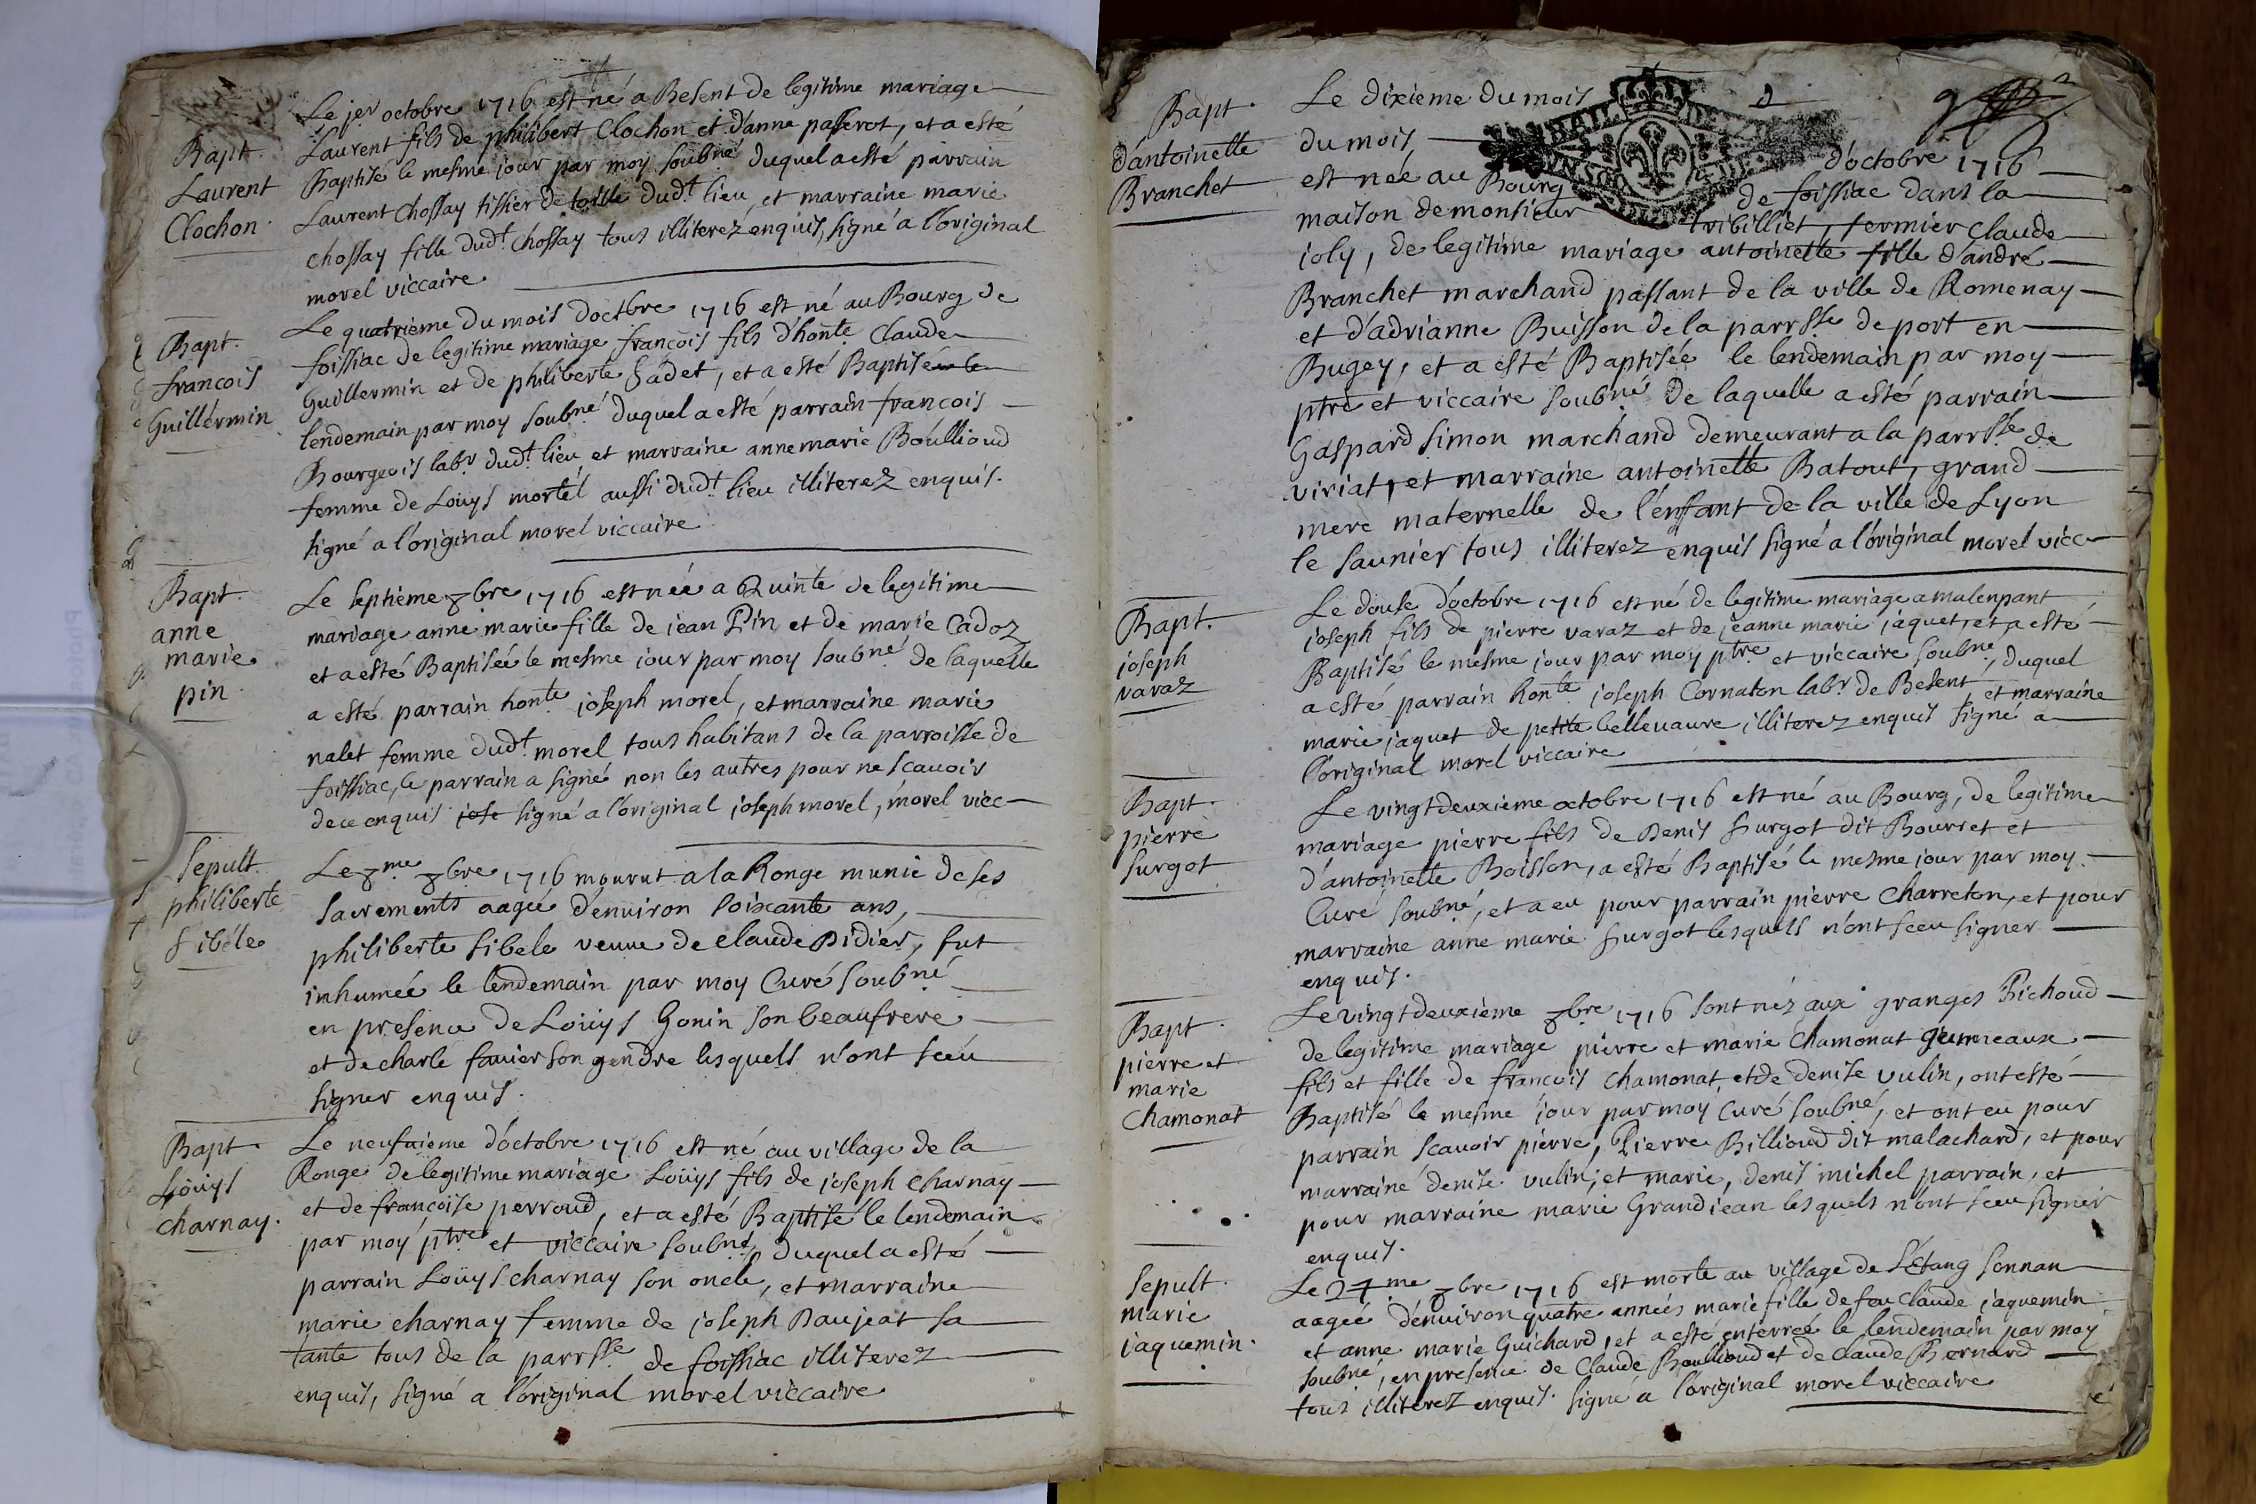 Bapt.
Laurent
Clochon.
Le jer octobre 1716 est né a Besent de legitime mariage
Laurent fils de philibert Clochon et d'anne passerot, et a esté
Baptisé le mesme jour par moy soubné duquel a esté parrain
Laurent Chossay tissier de toille dudt lieu, et marraine marie
chossay fille dudt Chossay tous illiterez enquis, signé a l'original
morel viccaire
Bapt.
francois
Guillermin
Le quatrieme du mois doctbre 1716 est né au Bourg de
foissiac de legitime mariage francois fils d'honte Claude
Guillermin et de philiberte Sadet, et a esté Baptisé le
lendemain par moy soubné duquel a esté parrain francois
Bourgeois labr dudt lieu et marraine anne marie Boullioud
femme de Loüys mortel aussi dudt lieu illiterez enquis.
signé a l'original morel viccaire
Bapt.
anne
marie
pin.
Le septieme 8bre 1716 est née a Quinte de legitime
mariage anne marie fille de jean Pin et de marie Cadoz
et a esté Baptisée le mesme jour par moy soubné de laquelle
a esté parrain honte joseph morel, et marraine marie
nalet femme dudt morel tous habitans de la parroisse de
foissiac, le parrain a signé non les autres pour ne scavoir
de ce enquis jose signé a l'original joseph morel, morel vicc
Sepult.
philiberte
Sibéle
Le 8me 8bre 1716 mourut a la Ronge munie de ses
sacrements aagée d'enuiron soixante ans,
philiberte sibele veuue de claude Didier, fut
inhumée le lendemain par moy Curé soubné
en presence de Loüys Gonin son beaufrere
et de charle fauier son gendre lesquells n'ont sceu
signer enquis.
Bapt.
Loüys
charnay.
Le neufuieme d'octobre 1716 est né au village de la
Ronge de legitime mariage Loüys fils de joseph charnay
et de francoise perroud, et a esté Baptisé le lendemain
par moy ptre et viccaire soubné, duquel a esté
parrain Loüys charnay son oncle, et marraine
marie charnay femme de joseph Baujeat sa
tante tous de la parrsse de foissiac illiterez
enquis, signé a l'original morel viccaire
Bapt.
d'antoinette
Branchet
Le dixieme du mois
du mois d'octobre 1716
est née au Bourg de foissiac dans la
maison de monsieur tribilliet, fermier Claude
joly, de legitime mariage antoinette fille d'andré
Branchet marchand passant de la ville de Romenay
et d'adrianne Buisson de la parrsse de port en
Bugey, et a esté Baptisée le lendemain par moy
ptre et viccaire soubné de laquelle a esté parrain
Gaspard simon marchand demeurant a la parrsse de
viriat, et marraine antoinette Batout, grand
mere maternelle de l'enfant de la ville de Lyon
le saunier tous illiterez enquis signé a l'original morel vicc
Bapt.
joseph
varaz
Le douse d'octobre 1716 est né de legitime mariage a malenpant
joseph fils de pierre varaz et de jeanne marie jaquet, et a esté
Baptisé le mesme jour par moy ptre et viccaire soubné, duquel
a esté parrain honte joseph Cornaton labr de Besent, et marraine
marie jaquet de petite bellevauvre illiterez enquis signé a
l'original morel viccaire
Bapt.
pierre
surgot
Le vingtdeuxieme octobre 1716 est né au Bourg, de legitime
mariage pierre fils de Denis surgot dit Bourret et
d'antoinette Boisson, a esté Baptisé le mesme jour par moy
Curé soubné, et a eu pour parrain pierre Charreton, et pour
marraine anne marie surgot lesquells n'ont sceu signer
enquis.
Bapt.
pierre et
marie
Chamonat
Le vingtdeuxieme 8bre 1716 sont néz aux granges Pichoud
de legitime mariage pierre et marie Chamonat gemeaux
fils et fille de francois chamonat, et de denise vulin, ont esté
Baptisé le mesme jour par moy Curé soubné, et ont eu pour
parrain scavoir pierre, Pierre Billioud dit malachard, et pour
marraine denise vulin; et marie, denis michel parrain, et
pour marraine marie Grandjean lesquels n'ont sceu signer
enquis.
Sepult.
marie
jaquemin.
Le 27me 8bre 1716 est morte au village de L'étang sonnan
aagée d'enuiron quatre années marie fille de feu Claude jaquemin
et anne marie Guichard, et a esté enterreé le lendemain par moy
soubné, en presence de Claude Boullioud et de claude Bernard
tous illiterez enquis. signé a l'original morel viccaire